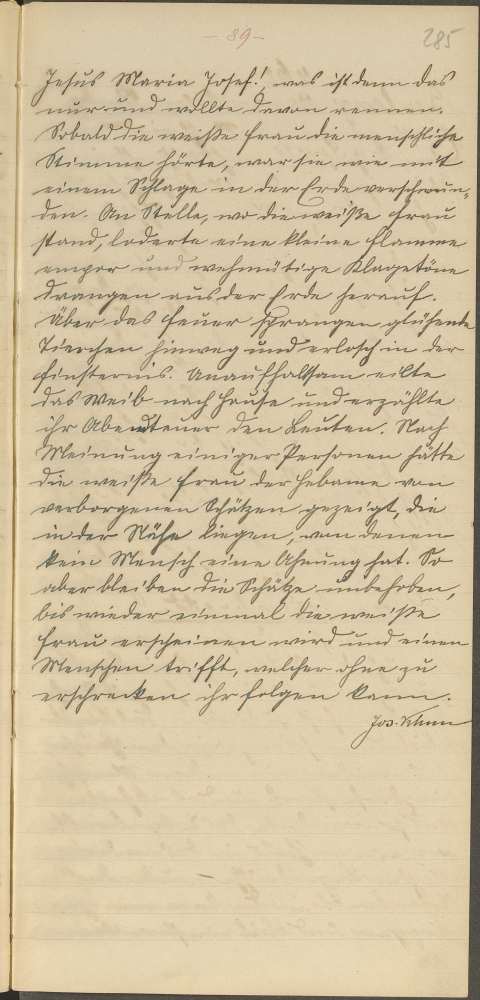 - 89 -
285
Jesus Maria Josef!, was ist denn das
nur und wollte davon rennen.
Sobald die weiße Frau die menschliche
Stimme hörte, war sie wie mit
einem Schlage in der Erde verschwun-
den. An Stelle, wo die weiße Frau
stand, loderte eine kleine Flamme
empor und wehmütige Klagetöne
drangen aus der Erde herauf.
Über das Feuer sprangen glühende
Tierchen hinweg und erlosch in der
Finsternis. Unaufhaltsam eilte
das Weib nach Hause und erzählte
ihr Abendteuer den Leuten. Nach
Meinung einiger Personen hätte
die weiße Frau der Hebame von
verborgenen Schätzen gezeigt, die
in der Nähe liegen, von denen
kein Mensch eine Ahnung hat. So
aber bleiben die Schätze unbehoben,
bis wieder einmal die weiße
Frau erscheinen wird und einen
Menschen trifft, welcher ohne zu
erschrecken ihr folgen kann.
Jos.